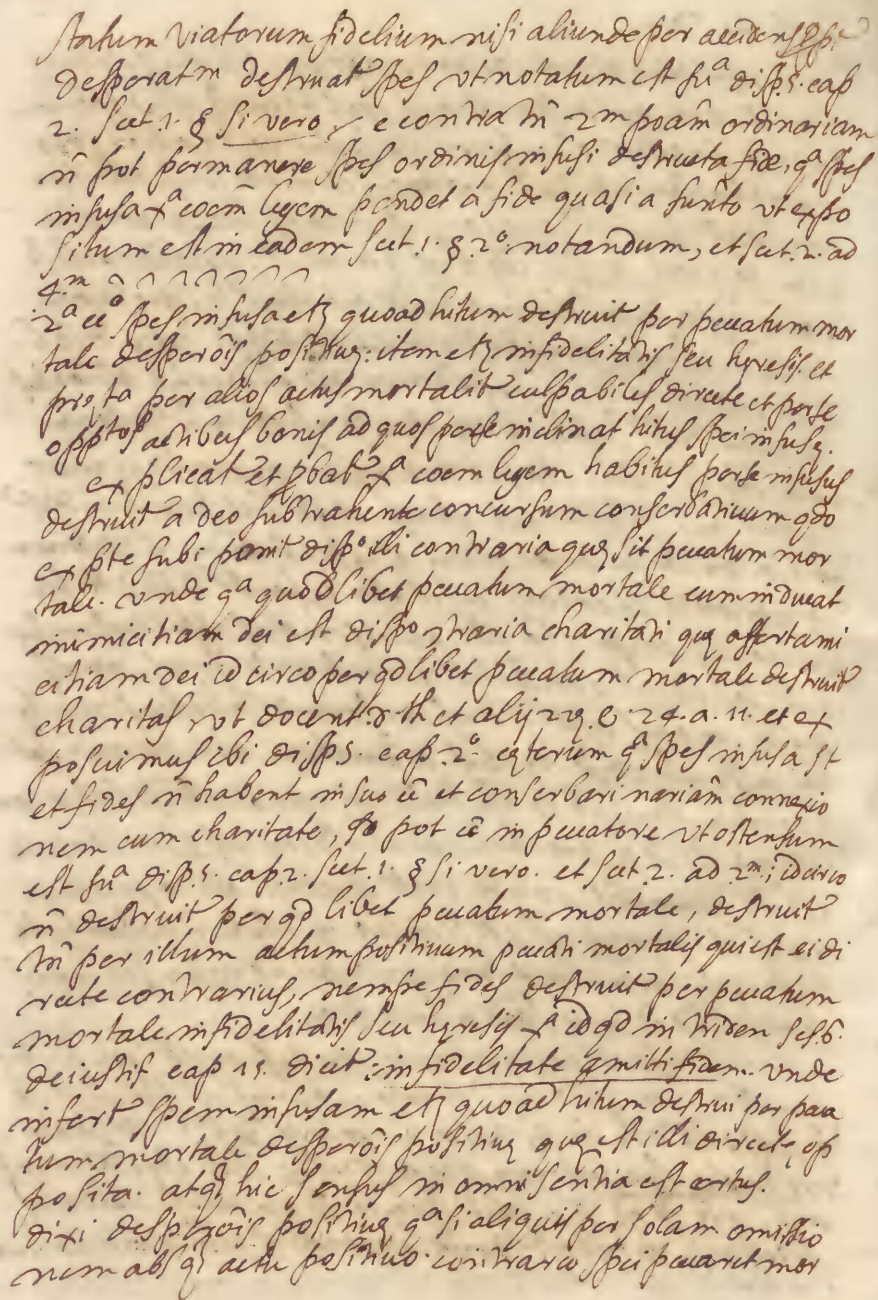 statum viatorum fidelium nisi aliunde per accidens
desperatm destruat spes vt notatum est suᵃ disp. 5. cap
2. sect. 1. § si vero, e contra tñ 2m poam̃ ordinariam
ñ pot permanere spes ordinis infusi destructa fide, qᵃ spes
infusa xᵃ coem̃ legem pendet a fide quasi a funto vt expo
situm est in eadem sect. 1. § 2º notandum, et sect. 2. ad
4.m
2ᵃ cº spes infusa etȝ quoad hitum destruit per peccatum mor
tale desperõis positiuę: item etȝ infidelitatis seu hęresis. et
per alios actus mortalit culpabiles directe et per se
opptos actibus bonis ad quos per se inclinat hitus spei infusę.
explicat et pbat xᵃ coem legem habitus per se infusus
destruit a deo subtrahente concursum conserbatiuum qdo
ex pte subi ponit dispº illi contraria quę sit peccatum mor
tale. vnde qᵃ quodlibet peccatum mortale cum inducat
inimicitiam dei est dispo ɔtraria charitati quę affert ami
citiam dei idcirco per qdlibet peccatum mortale destruit
charitas, vt docent D. th et alij 22ę q. 24. a. 11. et ex
posuimus ibi disp 5. cap. 2º. cęterum qᵃ spes infusa st
et fides ñ habent in suo ẽẽ et conserbari nariam̃ connexio
nem cum charitate, pot ẽẽ in peccatore vt ostensum
est suᵃ disp. 5. cap. 2. sect. 1. § si vero. et sect. 2. ad 2m; idcirco
ñ destruit per qdlibet peccatum mortale, destruit
tñ per illum actum positiuum peccati mortalis qui est ei di
recte contrarius, nempe fides destruit per peccatum
mortale infidelitatis seu hęresis xᵃ id qd in triden ses. 6.
de iustif cap 15. dicit: infidelitate amitti fidem. vnde
infert spem infusam etȝ quoad hitum destrui per pecca
tum mortale desperõis positiuę quę est illi directe op
posita. atqȝ hic sensus in omni sententia est certus.
dixi desperõis positiuę qᵃ si aliquis per solam omissio
nem absqȝ actu positiuo contrareo spei peccaret mor